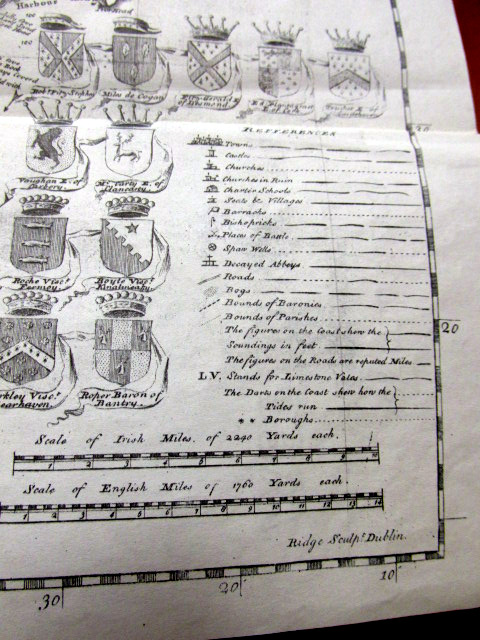 Harbour
100
Robt. Fitz Stephen
Miles de Cogan
of Desmond
Vaughan E. of
Carbery.
Mc. Carty E. of
Clancarty
Roche Visct.
Fermoy.
Boyle Visct.
Kinalmeaky
rkley Visct.
earhaven.
Roper Baron of
Bantry.
REFFERENCES
Towns
Castles
Churches
Churches in Ruin
Charter Schools
Seats & Villages
Barracks
Bishopricks
Places of Battle
Spaw Wells
Decayed Abbeys
Roads
Bogs
Bounds of Baronies
Bounds of Parishes
The figures on the Coast shew the
Soundings in feet
The figures on the Roads are reputed Miles
LV. Stands for Limestone Vales.
The Darts on the Coast shew how the
Tides run
** Boroughs
Scale of Irish Miles. of 2240 Yards each.
1 2 3 4 5 6 7 8 9 10
Scale of English Miles of 1760 Yards each.
1 2 3 4 5 6 7 8 9 10 11 12
Ridge Sculpt. Dublin.
30
20
10
20